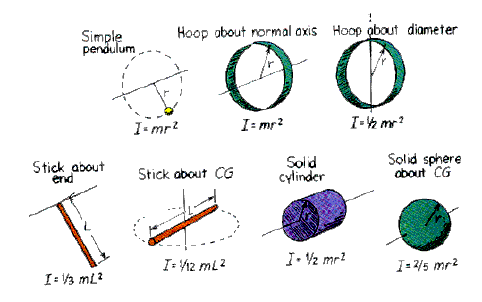 Simple
pendulum
r
I = mr²
Hoop about normal axis
r
I = mr²
Hoop about diameter
r
I = ½ mr²
Stick about
end
L
I = ⅓ mL²
Stick about CG
L
I = 1/12 mL²
Solid
cylinder
r
I = ½ mr²
Solid sphere
about CG
r
I = 2/5 mr²